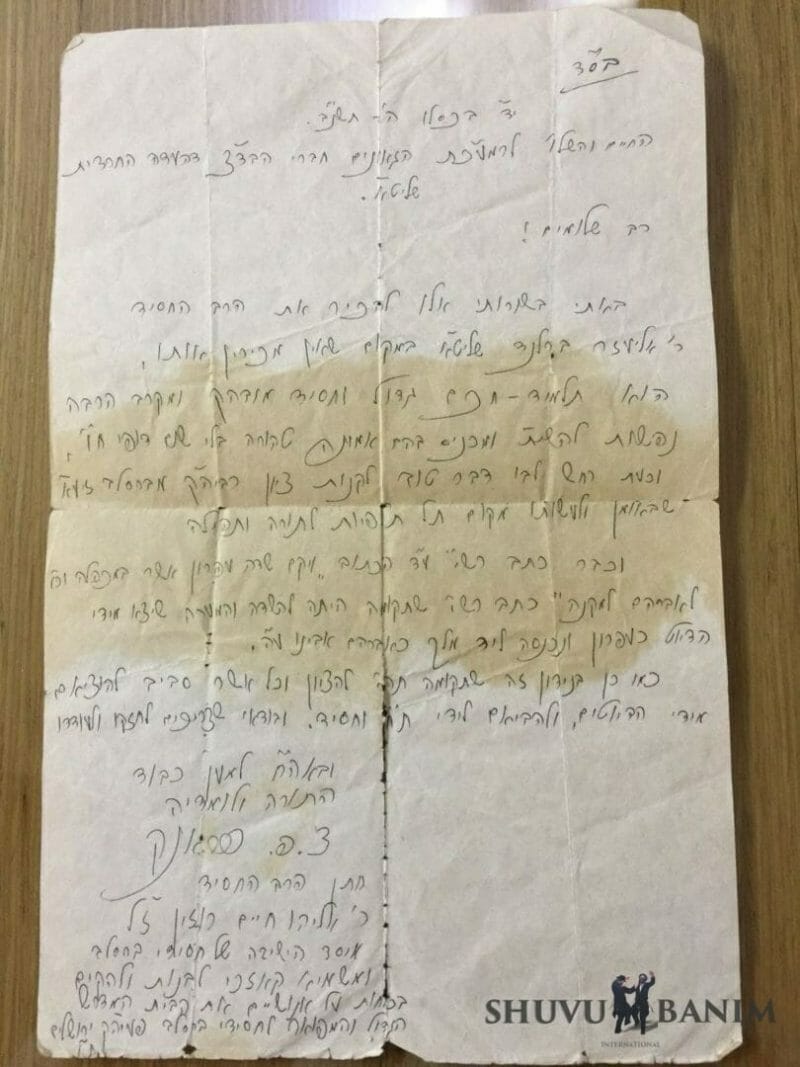 בס״ד
י״ד בכסלו ה׳ תשנ״ב.
החיים והשלו׳ למערכת הגאונים חברי הבד״צ דהעדה החרדית
שליט״א.
רב שלומים!
באתי בשורותי אלו להכיר את הרב החסיד
ר׳ אליעזר ברלנד שליט״א במקום שאין מכירין אותו,
הוא תלמיד-חכם גדול וחסיד מובהק ומקרב הרבה
נפשות להשי״ת ומכניס בהם אמונה טהורה בלי שום דופי ח״ו,
וכעת רחש לבו דבר טוב לקנות ציון רביה״ק מברסלב זיע״א
שבאומן ולעשותו מקום תל תלפיות לתורה ותפלה
וכבר כתב רש״י עה״כ הכתוב ״ויקם שדה עפרון אשר במכפלה וכו׳
לאברהם למקנה״ כתב רש״י שתקומה היתה להשדה והמערה שיצא מידי
הדיוט כעפרון ונכנסה ליד מלך כאברהם אבינו ע״ה.
כמו כן בנידון זה שתקומה תהי׳ להציון וכל אשר סביב להוציאם
מידי הדיוטים, ולהביאם לידי ת״ח וחסיד. ובודאי שצריכים לחזקו ולעודדו
ובאה״ח למען כבוד
התורה ולומדיה
צ.פ.
חתן הרב החסיד
ר׳ אליהו חיים רוזין ז״ל
מיסד הישיבה של חסידי ברסלב
ומשמיא קאזכי לבנות ולהקים
את בית המדרש
הגדול והמפואר לחסידי ברסלב פעיה״ק ירושלים
SHUVU BANIM
INTERNATIONAL